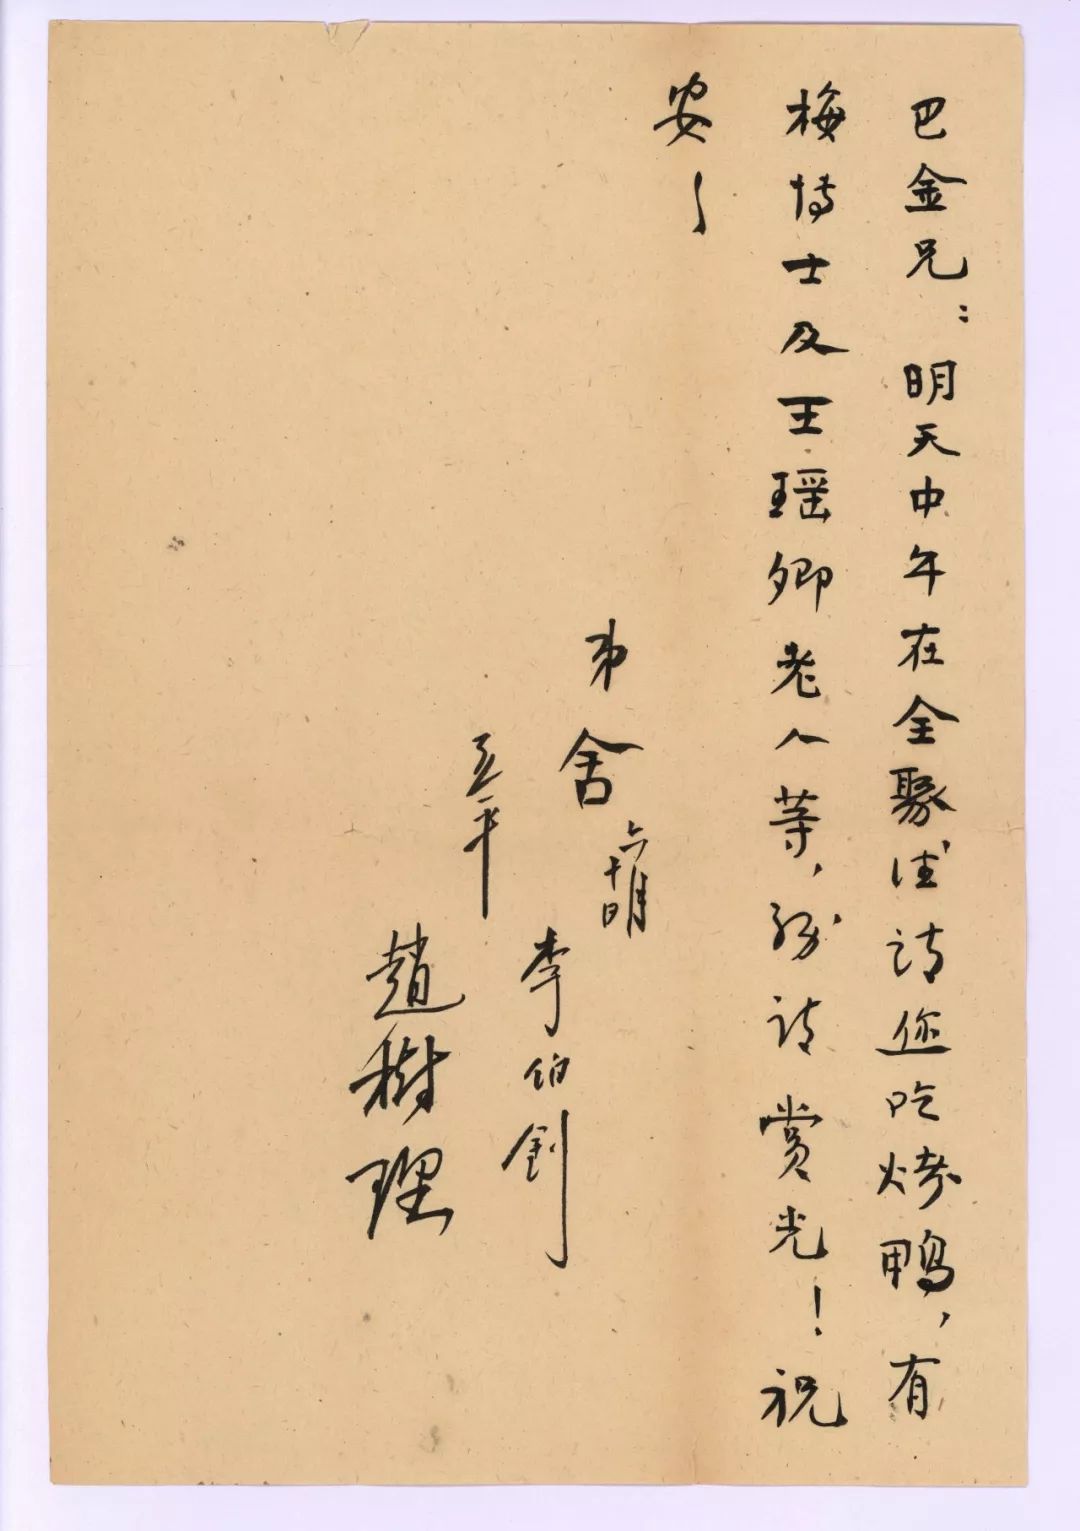 巴金兄：明天中午在全聚德请您吃烤鸭，有
梅博士及王瑶卿老人等，務请赏光！祝
安！
弟 舍
六月十日
李伯釗
亚平
趙樹理